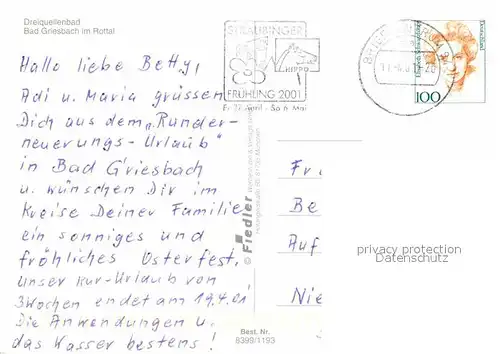 Dreiquellenbad
Bad Griesbach im Rottal
Hallo liebe Betty,
Adi u. Maria grüssen
Dich aus dem „Runder-
neuerungs-Urlaub"
in Bad Griesbach
u. wünschen Dir im
Kreise Deiner Familie
ein sonniges und
fröhliches Osterfest.
Unser Kur-Urlaub von
3 Wochen endet am 19.4.01
Die Anwendungen u.
das Wasser bestens!
STRAUBINGER
HIPPO
FRÜHLING 2001
Fr. 27. April - So. 6. Mai
100
© Fiedler
Best. Nr.
8399/1193
Fr
Be
Auf
Nie
privacy protection
Datenschutz